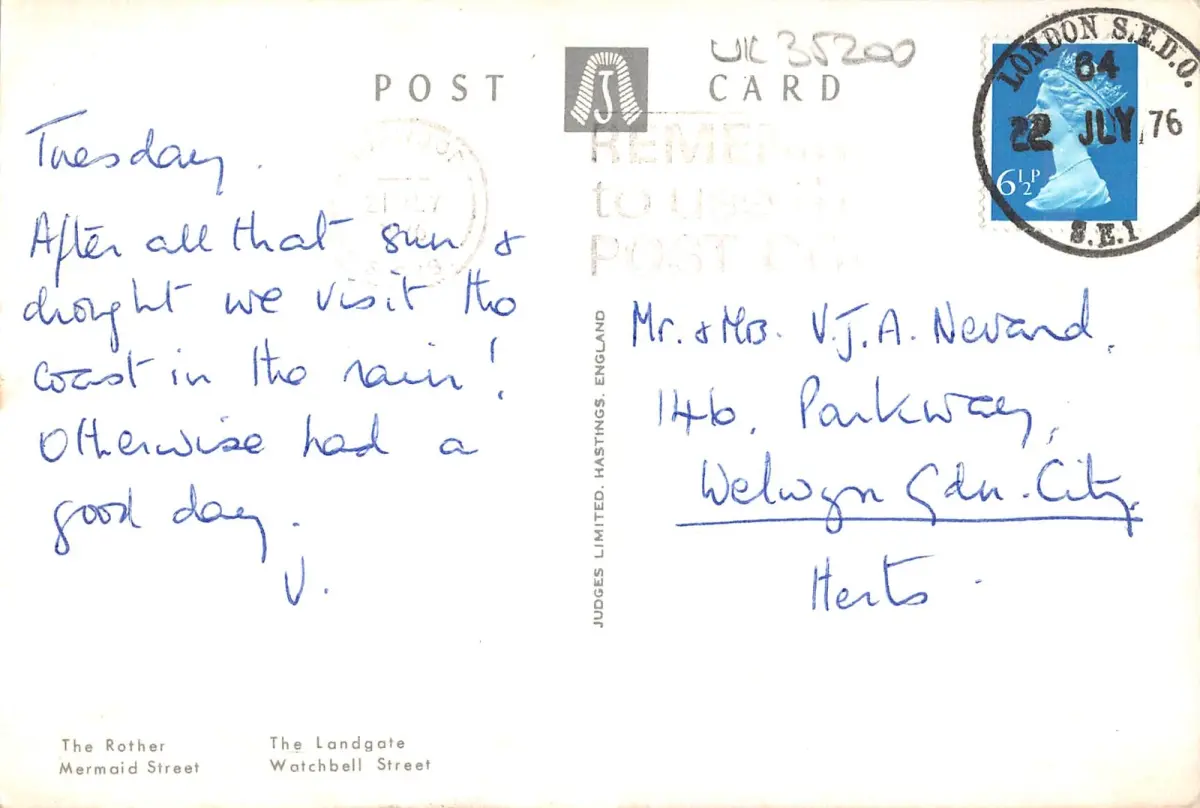 POST CARD
UK 35200
J
LONDON S.E.D.O.
64
22 JLY 76
S.E.1
6½P
21 JLY
REMEM
to use
POST C
Tuesday.
After all that sun &
drought we visit the
coast in the rain!
Otherwise had a
good day.
V.
JUDGES LIMITED. HASTINGS, ENGLAND
Mr. & Mrs. V.J.A. Nevard,
146, Parkway,
Welwyn Gdn. City,
Herts
The Rother
Mermaid Street
The Landgate
Watchbell Street